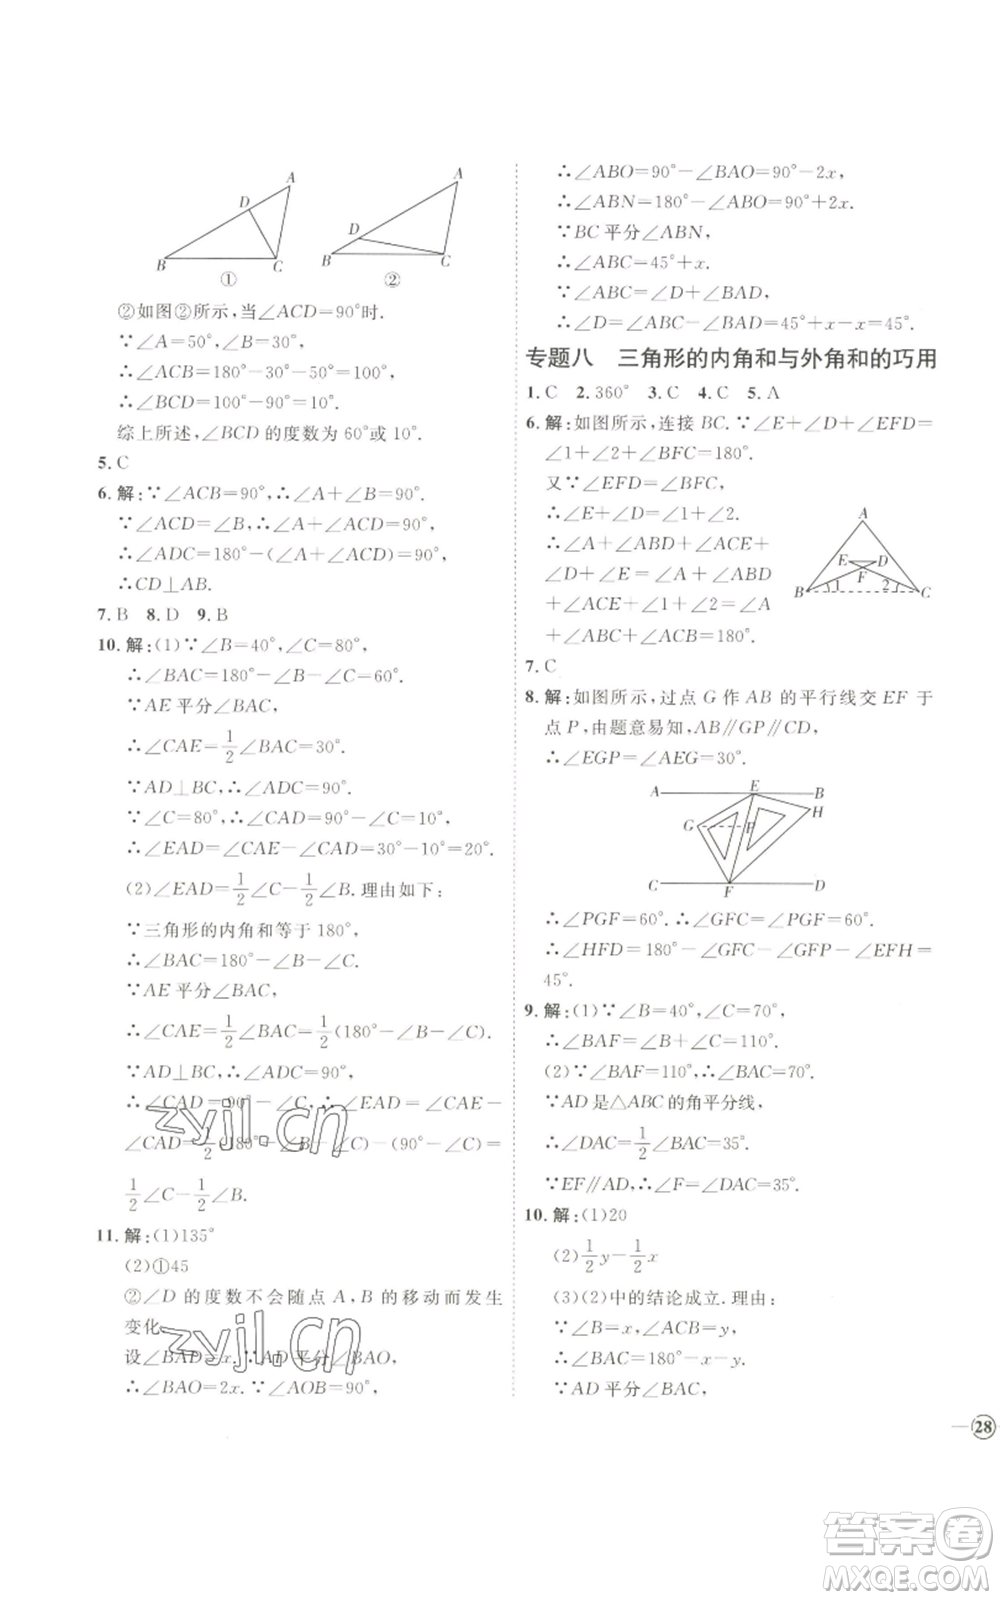 A
D
B
C
①
A
D
B
C
②
②如图②所示,当∠ACD=90°时.
∵∠A=50°,∠B=30°,
∴∠ACB=180°-30°-50°=100°.
∴∠BCD=100°-90°=10°.
综上所述,∠BCD 的度数为 60°或 10°.
5. C
6. 解:∵∠ACB=90°,∴∠A+∠B=90°.
∵∠ACD=∠B,∴∠A+∠ACD=90°.
∴∠ADC=180°-(∠A+∠ACD)=90°.
∴CD⊥AB.
7. B 8. D 9. B
10. 解:(1)∵∠B=40°,∠C=80°,
∴∠BAC=180°-∠B-∠C=60°.
∵AE 平分∠BAC,
∴∠CAE=1/2∠BAC=30°.
∵AD⊥BC,∴∠ADC=90°.
∵∠C=80°,∴∠CAD=90°-∠C=10°,
∴∠EAD=∠CAE-∠CAD=30°-10°=20°.
(2)∠EAD=1/2∠C-1/2∠B.理由如下:
∵三角形的内角和等于 180°,
∴∠BAC=180°-∠B-∠C.
∵AE 平分∠BAC,
∴∠CAE=1/2∠BAC=1/2(180°-∠B-∠C).
∵AD⊥BC,∴∠ADC=90°.
∴∠CAD=90°-∠C,∴∠EAD=∠CAE-
∠CAD=1/2(180°-∠B-∠C)-(90°-∠C)=
1/2∠C-1/2∠B.
11. 解:(1)135°
(2)①45
②∠D 的度数不会随点 A,B 的移动而发生
变化.
设∠BAD=x.∵AD平分∠BAO,
∴∠BAO=2x.∵∠AOB=90°,
∴∠ABO=90°-∠BAO=90°-2x,
∴∠ABN=180°-∠ABO=90°+2x.
∵BC 平分∠ABN,
∴∠ABC=45°+x.
∵∠ABC=∠D+∠BAD,
∴∠D=∠ABC-∠BAD=45°+x-x=45°.
专题八 三角形的内角和与外角和的巧用
1. C 2. 360° 3. C 4. C 5. A
6. 解:如图所示,连接 BC.∵∠E+∠D+∠EFD=
∠1+∠2+∠BFC=180°.
又∵∠EFD=∠BFC,
∴∠E+∠D=∠1+∠2.
∴∠A+∠ABD+∠ACE+
∠D+∠E=∠A+∠ABD
+∠ACE+∠1+∠2=∠A
+∠ABC+∠ACB=180°.
A
E
D
F
1
2
B
C
7. C
8. 解:如图所示,过点 G 作 AB 的平行线交 EF 于
点 P,由题意易知,AB∥GP∥CD,
∴∠EGP=∠AEG=30°.
A
E
B
H
G
P
C
F
D
∴∠PGF=60°.∴∠GFC=∠PGF=60°.
∴∠HFD=180°-∠GFC-∠GFP-∠EFH=
45°.
9. 解:(1)∵∠B=40°,∠C=70°,
∴∠BAF=∠B+∠C=110°.
(2)∵∠BAF=110°,∴∠BAC=70°.
∵AD 是△ABC 的角平分线,
∴∠DAC=1/2∠BAC=35°.
∵EF∥AD,∴∠F=∠DAC=35°.
10. 解:(1)20
(2)1/2y-1/2x
(3)(2)中的结论成立.理由:
∵∠B=x,∠ACB=y,
∴∠BAC=180°-x-y.
∵AD平分∠BAC,
28
zyjl.cn
zyjl.cn
答案卷
MXQE.COM